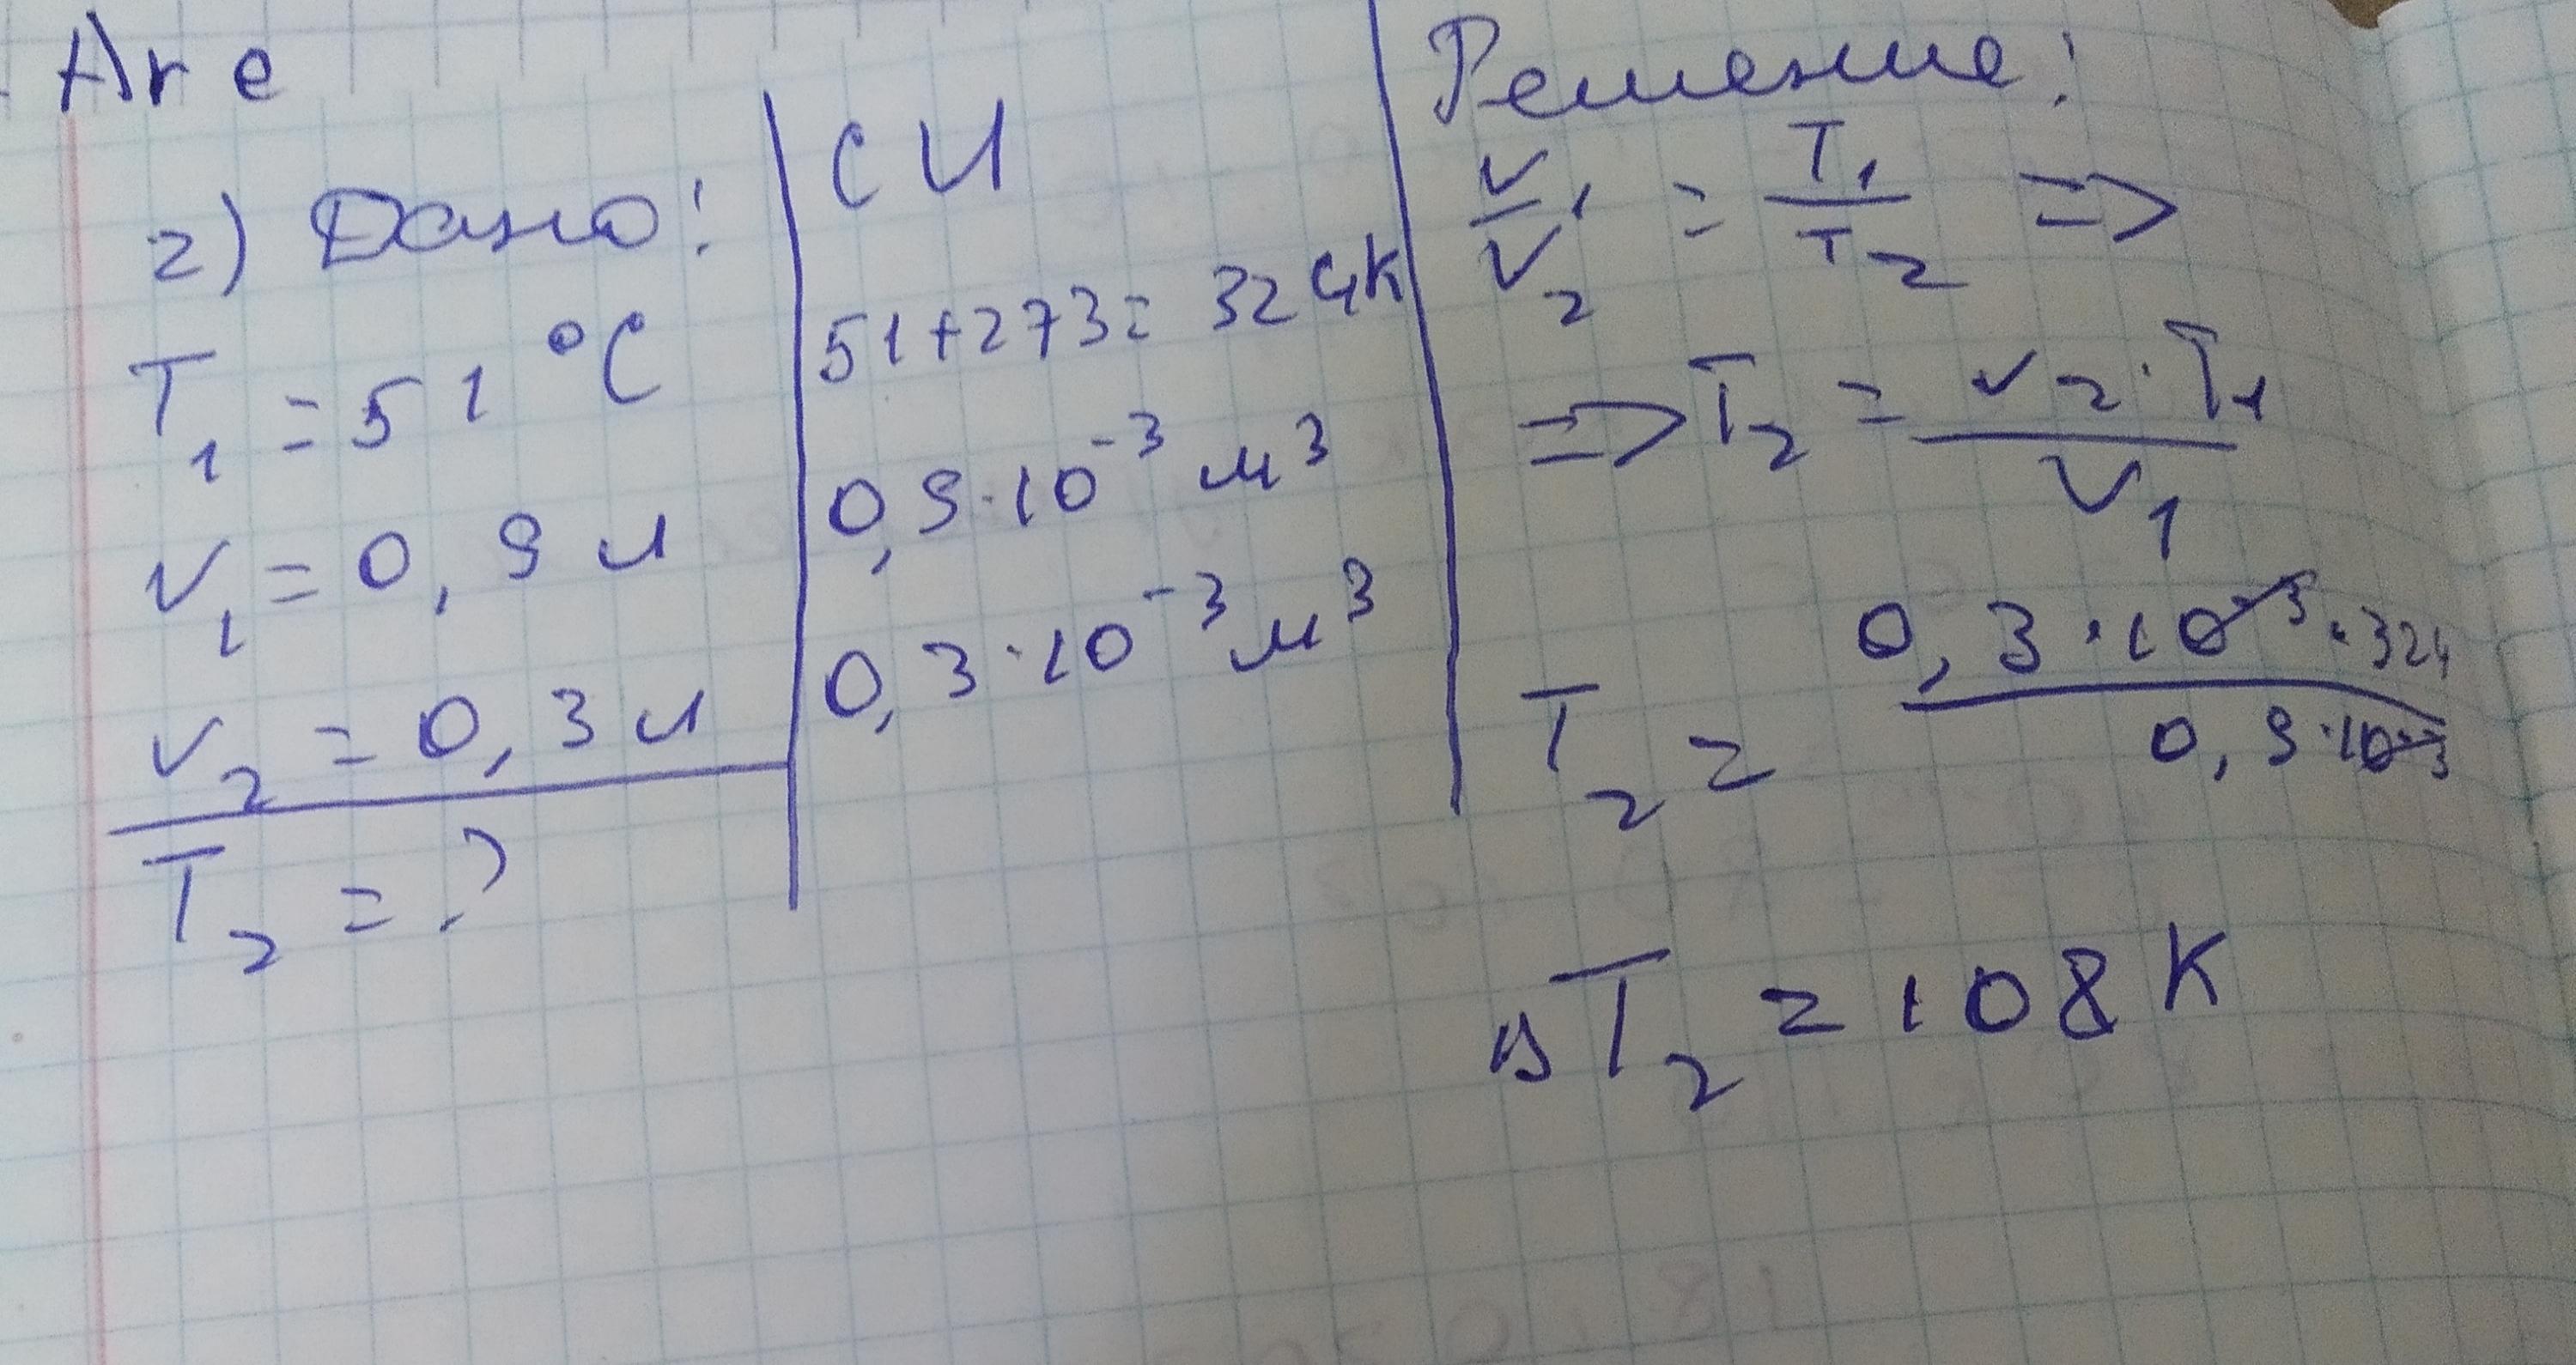 Ar e
2) Дано:
T₁ = 51 °C
V₁ = 0,9 л
V₂ = 0,3 л
T₂ = ?
СИ
51+273= 324K
0,9·10⁻³ м³
0,3·10⁻³ м³
Решение:
V₁/V₂ = T₁/T₂ =>
=> T₂ = V₂·T₁/V₁
T₂ = 0,3·10⁻³·324/0,9·10⁻³
T₂ = 108 K